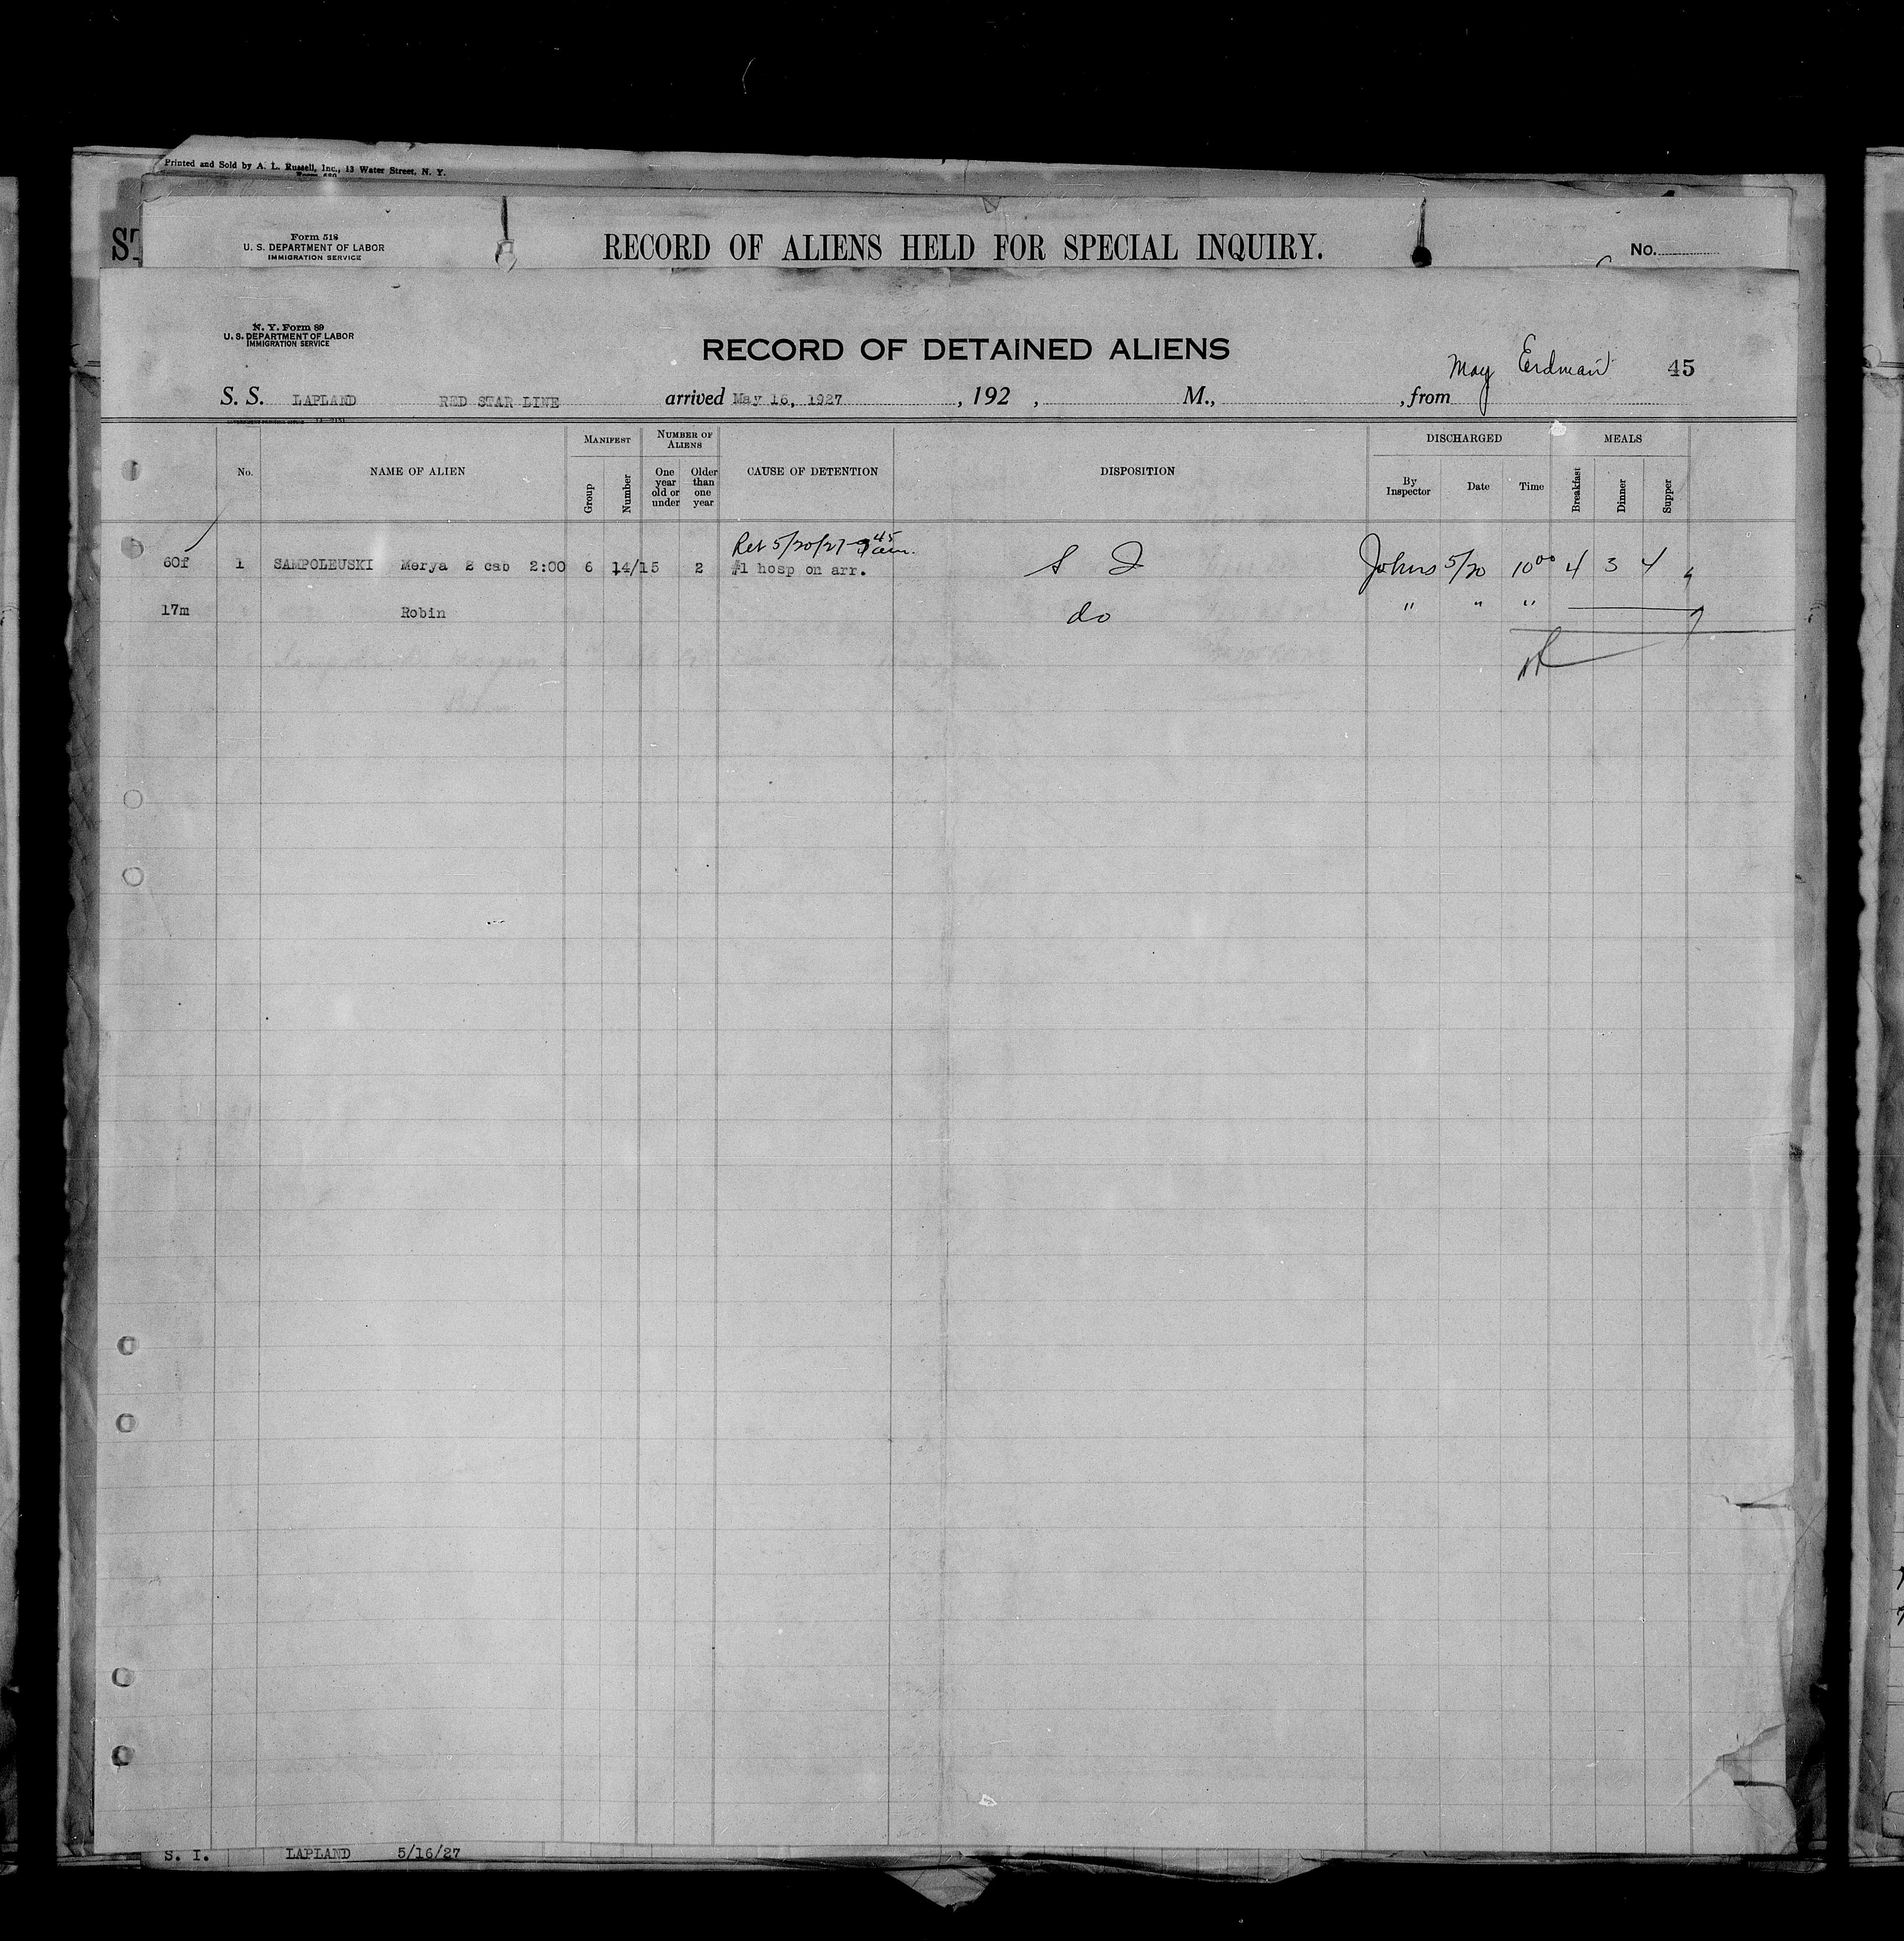 Printed and Sold by A. L. Russell, Inc., 13 Water Street, N. Y.
ST
Form 518
U. S. DEPARTMENT OF LABOR
IMMIGRATION SERVICE
RECORD OF ALIENS HELD FOR SPECIAL INQUIRY.
No.
N. Y. Form 89
U. S. DEPARTMENT OF LABOR
IMMIGRATION SERVICE
RECORD OF DETAINED ALIENS
May Erdman 45
S. S. LAPLAND RED STAR LINE arrived May 16, 1927, 192 , M., , from
No. NAME OF ALIEN MANIFEST Group Number NUMBER OF ALIENS One year old or under Older than one year CAUSE OF DETENTION DISPOSITION DISCHARGED By Inspector Date Time MEALS Breakfast Dinner Supper
Ret 5/20/27 9 45 am.
60f 1 SAMPOLEUSKI Merya 2 cab 2:00 6 14/15 2 #1 hosp on arr. S I Johns 5/20 10 00 4 3 4
17m Robin do " " "
S. I. LAPLAND 5/16/27